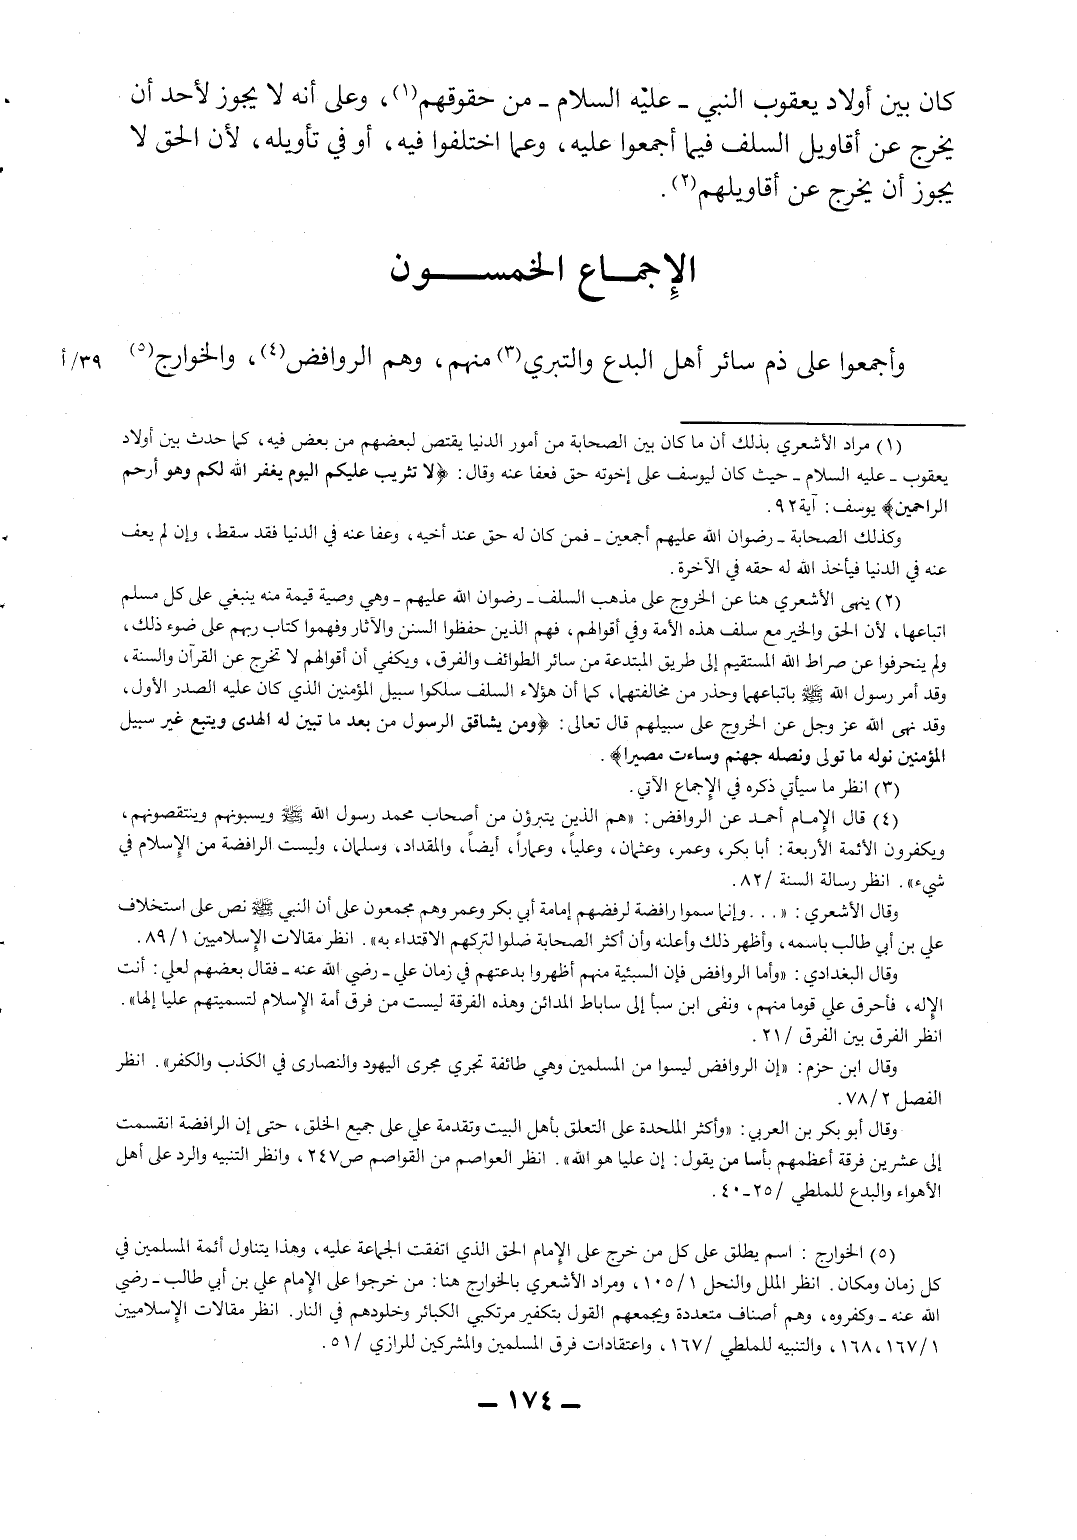 كان بين أولاد يعقوب النبي ـ عليْه السلام ـ من حقوقهم(١)، وعلى أنه لا يجوز لأحد أن
يخرج عن أقاويل السلف فيما أجمعوا عليه، وعما اختلفوا فيه، أو في تأويله، لأن الحق لا
يجوز أن يخرج عن أقاويلهم(٢).
الإجمـــاع الخمســـــون
وأجمعوا على ذم سائر أهل البدع والتبري(٣) منهم، وهم الروافض(٤)، والخوارج(٥) ٣٩/أ
(١) مراد الأشعري بذلك أن ما كان بين الصحابة من أمور الدنيا يقتص لبعضهم من بعض فيه، كما حدث بين أولاد
يعقوب ـ عليه السلام ـ حيث كان ليوسف على إخوته حق فعفا عنه وقال: ﴿لا تثريب عليكم اليوم يغفر الله لكم وهو أرحم
الراحمين﴾ يوسف: آية٩٢.
وكذلك الصحابة ـ رضوان الله عليهم أجمعين ـ فمن كان له حق عند أخيه، وعفا عنه في الدنيا فقد سقط، وإن لم يعف
عنه في الدنيا فيأخذ الله له حقه في الآخرة.
(٢) ينهى الأشعري هنا عن الخروج على مذهب السلف ـ رضوان الله عليهم ـ وهي وصية قيمة منه ينبغي على كل مسلم
اتباعها، لأن الحق والخير مع سلف هذه الأمة وفي أقوالهم، فهم الذين حفظوا السنن والآثار وفهموا كتاب ربهم على ضوء ذلك،
ولم ينحرفوا عن صراط الله المستقيم إلى طريق المبتدعة من سائر الطوائف والفرق، ويكفي أن أقوالهم لا تخرج عن القرآن والسنة،
وقد أمر رسول الله ﷺ باتباعهما وحذر من مخالفتهما، كما أن هؤلاء السلف سلكوا سبيل المؤمنين الذي كان عليه الصدر الأول،
وقد نهى الله عز وجل عن الخروج على سبيلهم قال تعالى: ﴿ومن يشاقق الرسول من بعد ما تبين له الهدى ويتبع غير سبيل
المؤمنين نوله ما تولى ونصله جهنم وساءت مصيرا﴾.
(٣) انظر ما سيأتي ذكره في الإجماع الآتي.
(٤) قال الإمام أحمد عن الروافض: «هم الذين يتبرؤن من أصحاب محمد رسول الله ﷺ ويسبونهم وينتقصونهم،
ويكفرون الأئمة الأربعة: أبا بكر، وعمر، وعثمان، وعلياً، وعماراً، أيضاً، والمقداد، وسلمان، وليست الرافضة من الإسلام في
شيء». انظر رسالة السنة /٨٢.
وقال الأشعري: «... وإنما سموا رافضة لرفضهم إمامة أبي بكر وعمر وهم مجمعون على أن النبي ﷺ نص على استخلاف
علي بن أبي طالب باسمه، وأظهر ذلك وأعلنه وأن أكثر الصحابة ضلوا لتركهم الاقتداء به». انظر مقالات الإسلاميين ٨٩/١.
وقال البغدادي: «وأما الروافض فإن السبئية منهم أظهروا بدعتهم في زمان علي ـ رضي الله عنه ـ فقال بعضهم لعلي: أنت
الإله، فأحرق علي قوما منهم، ونفى ابن سبأ إلى ساباط المدائن وهذه الفرقة ليست من فرق أمة الإسلام لتسميتهم عليا إلها».
انظر الفرق بين الفرق /٢١.
وقال ابن حزم: «إن الروافض ليسوا من المسلمين وهي طائفة تجري مجرى اليهود والنصارى في الكذب والكفر». انظر
الفصل ٧٨/٢.
وقال أبو بكر بن العربي: «وأكثر الملحدة على التعلق بأهل البيت وتقدمة علي على جميع الخلق، حتى إن الرافضة انقسمت
إلى عشرين فرقة أعظمهم بأسا من يقول: إن عليا هو الله». انظر العواصم من القواصم ص٢٤٧، وانظر التنبيه والرد على أهل
الأهواء والبدع للملطي /٢٥ـ٤٠.
(٥) الخوارج : اسم يطلق على كل من خرج على الإمام الحق الذي اتفقت الجماعة عليه، وهذا يتناول أئمة المسلمين في
كل زمان ومكان. انظر الملل والنحل ١٠٥/١، ومراد الأشعري بالخوارج هنا: من خرجوا على الإمام علي بن أبي طالب ـ رضي
الله عنه ـ وكفروه، وهم أصناف متعددة ويجمعهم القول بتكفير مرتكبي الكبائر وخلودهم في النار. انظر مقالات الإسلاميين
١٦٨،١٦٧/١، والتنبيه للملطي /١٦٧، واعتقادات فرق المسلمين والمشركين للرازي /٥١.
ـ ١٧٤ ـ